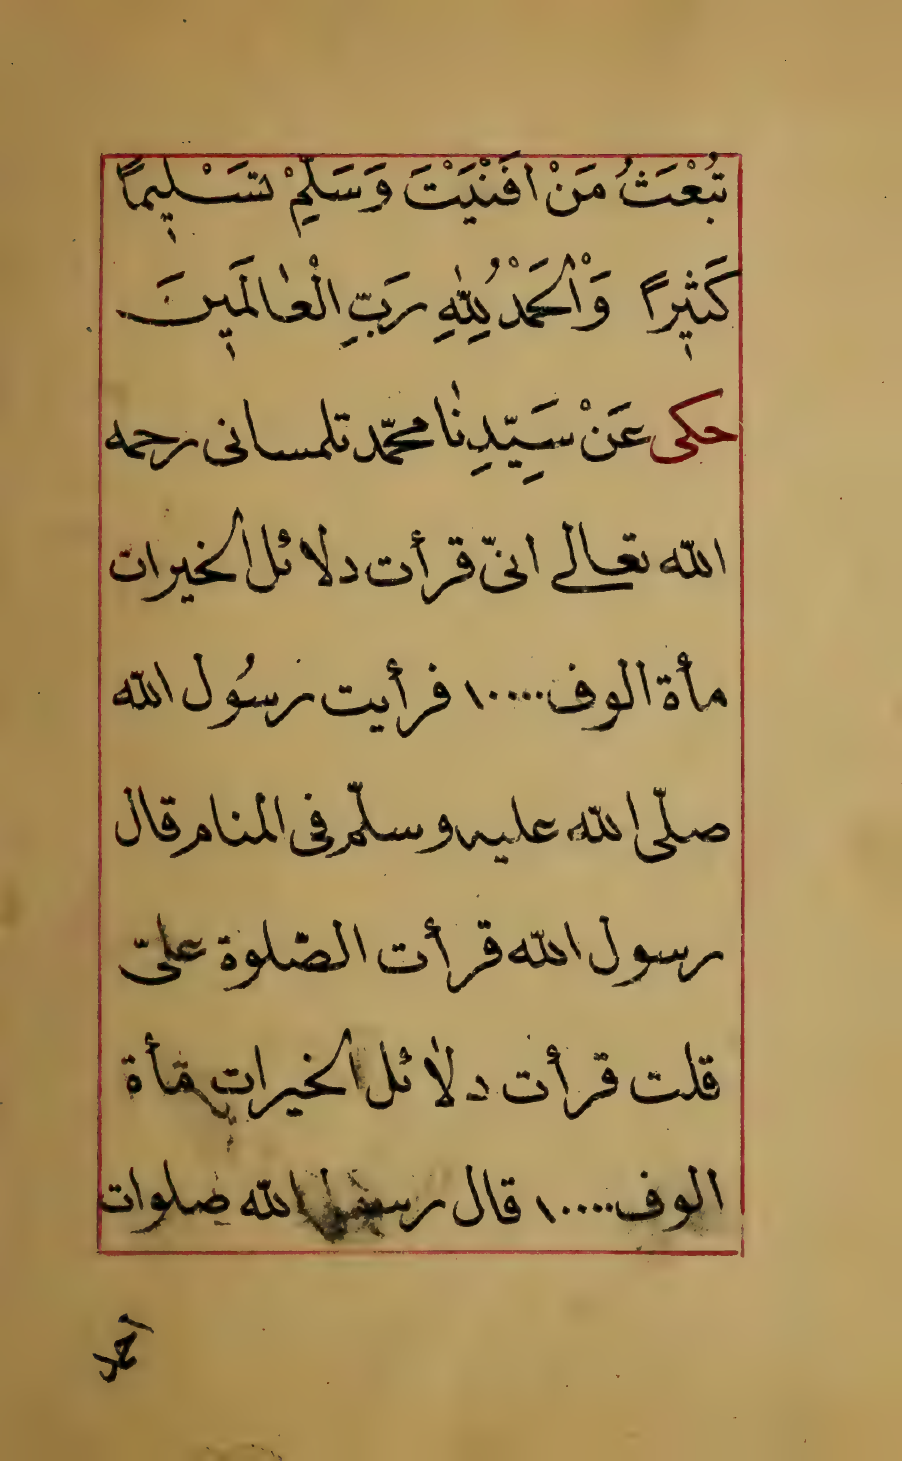 تُبْعَثُ مَنْ اَفْنَيْتَ وَسَلِّمْ تَسْلِيمًا
كَثِيرًا وَاْلحَمْدُ لِلّٰهِ رَبِّ الْعٰالَمَينَ
حكى عَنْ سَيِّدِنٰا محمّد تلمسانى رحمه
اللّه تعالى انىّ قرأت دلائل الخيرات
مأة الوف ١٠٠٠٠٠ فرأيت رسُول اللّه
صلّى اللّه عليه وسلّم فى المنام قال
رسول اللّه قرأت الصّلوة علىّ
قلت قرأت دلائل الخيرات مأة
الوف ١٠٠٠٠٠ قال رسول اللّه صلوات
احمد